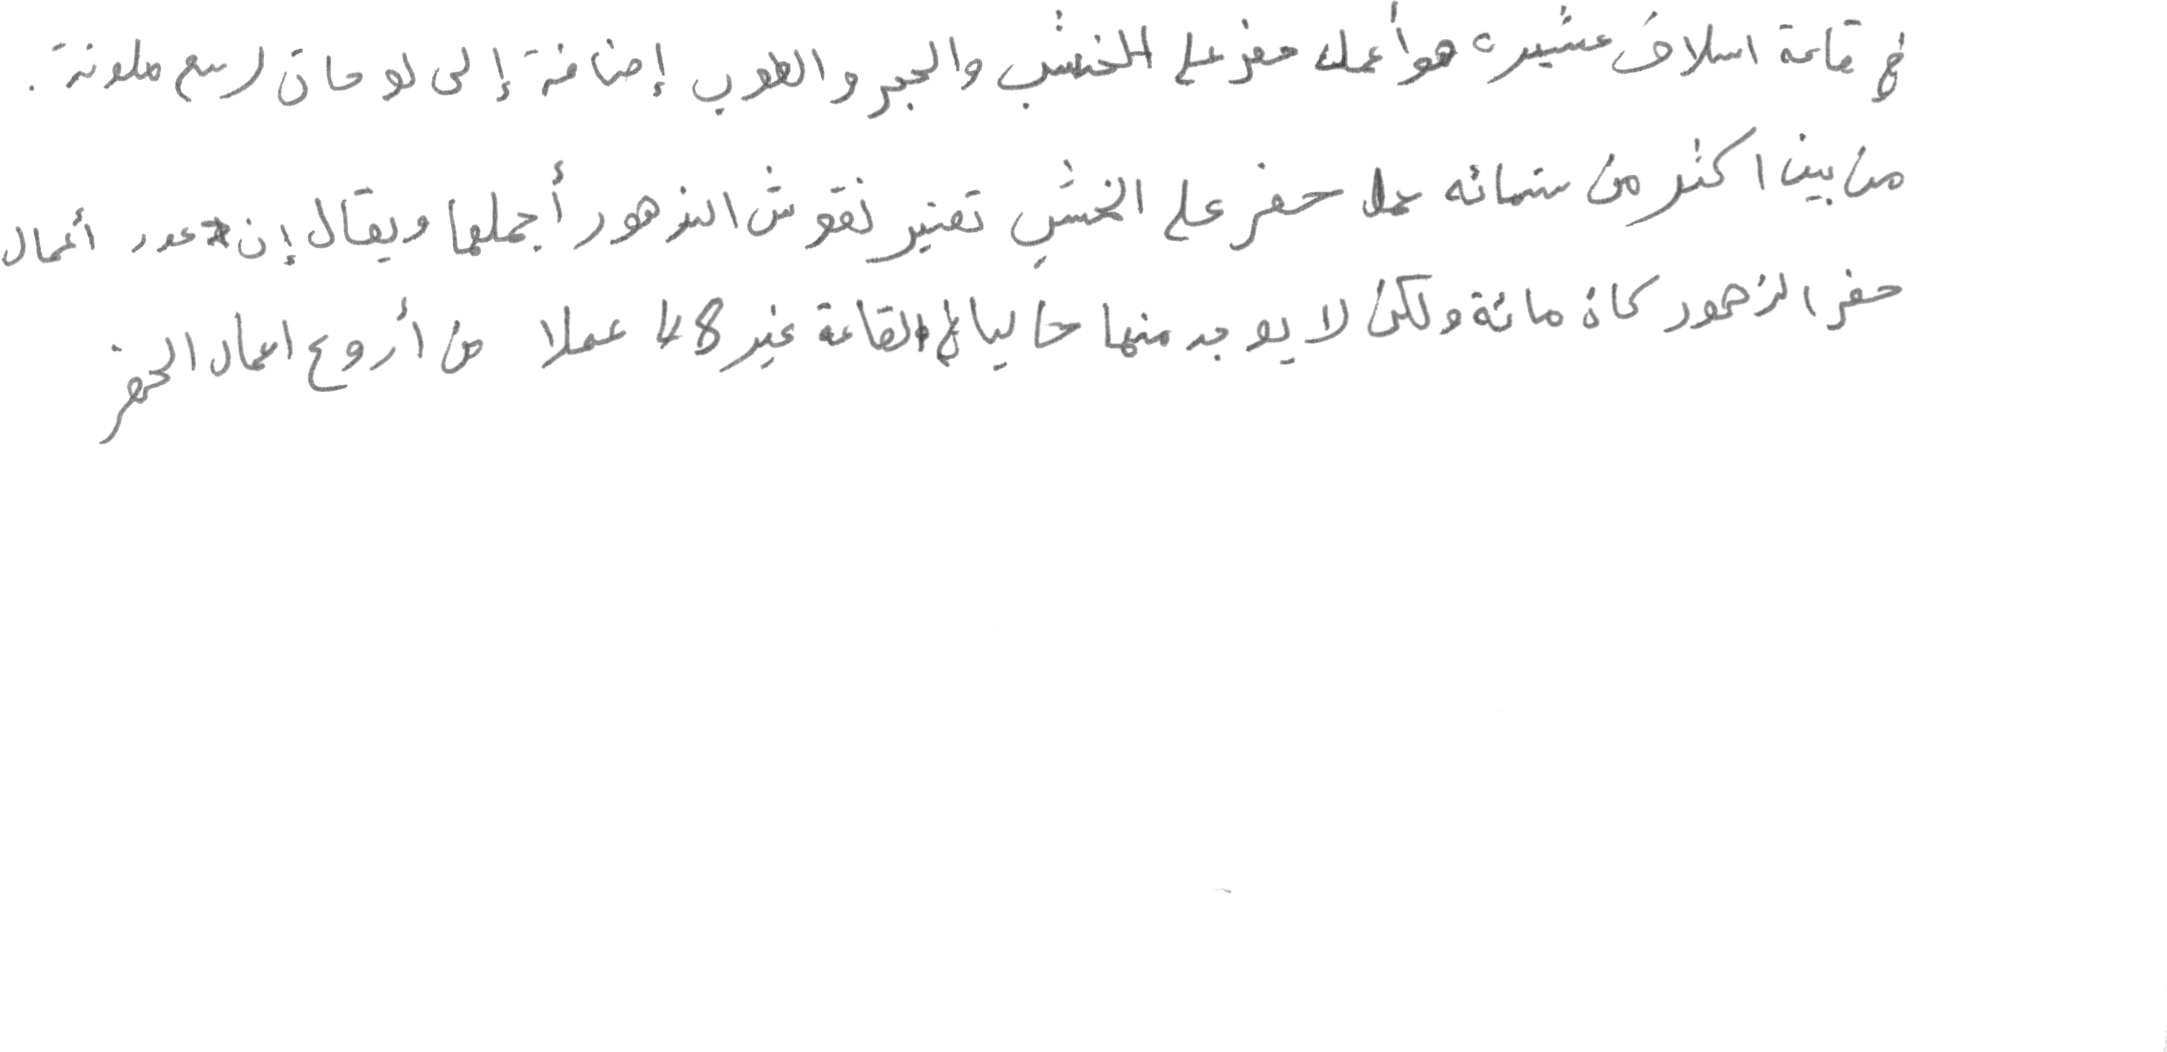 في قاعة اسلاف عشيرة هو أعمال حفر على الخشب والحجر والطوب إضافة إلى لوحات رسم ملونة .
من بين اكثر من ستمائه عملا حفر على الخشب تعتبر نقوش الزهور أجملها ويقال إن عدد أعمال
حفر الزهور كان مائة ولكن لا يوجد منها حاليا في القاعة غير 48 عملا من أروع اعمال الحفر